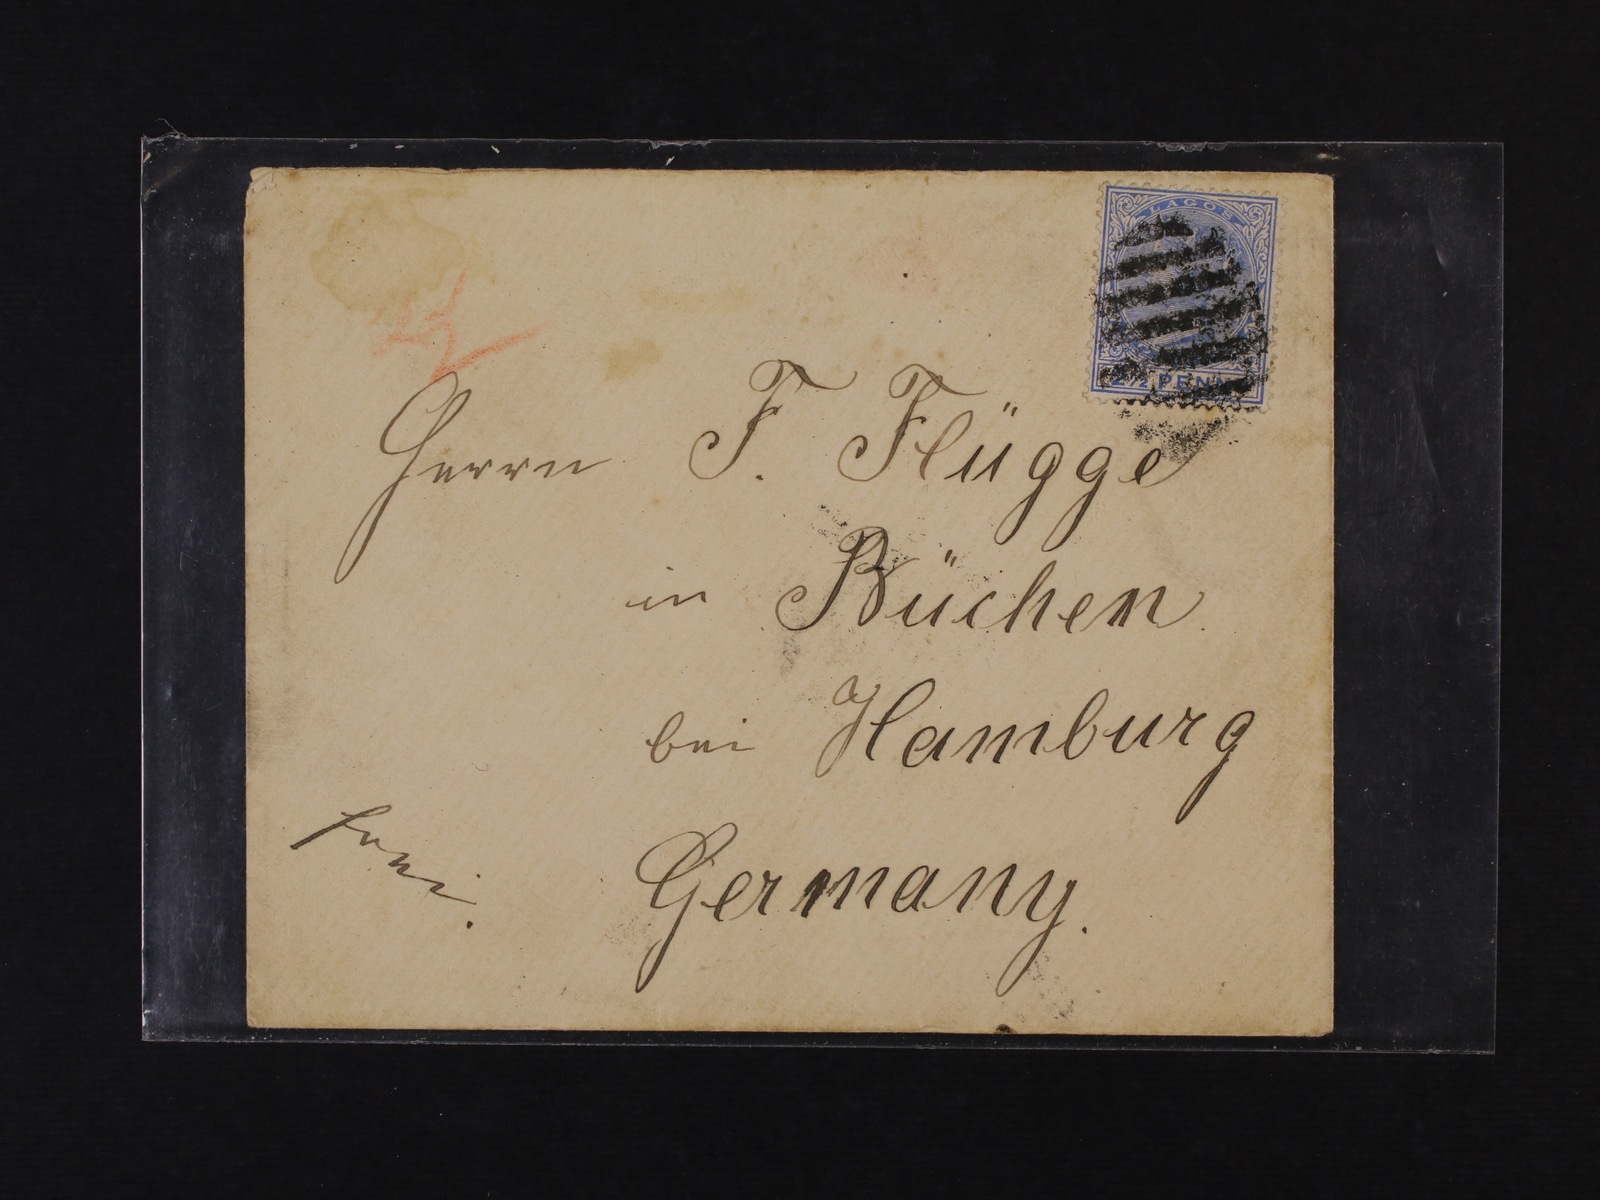 LAGOS
2½ PENN
2½
Herrn F. Flügge
in Büchen
bei Hamburg
frei.
Germany.